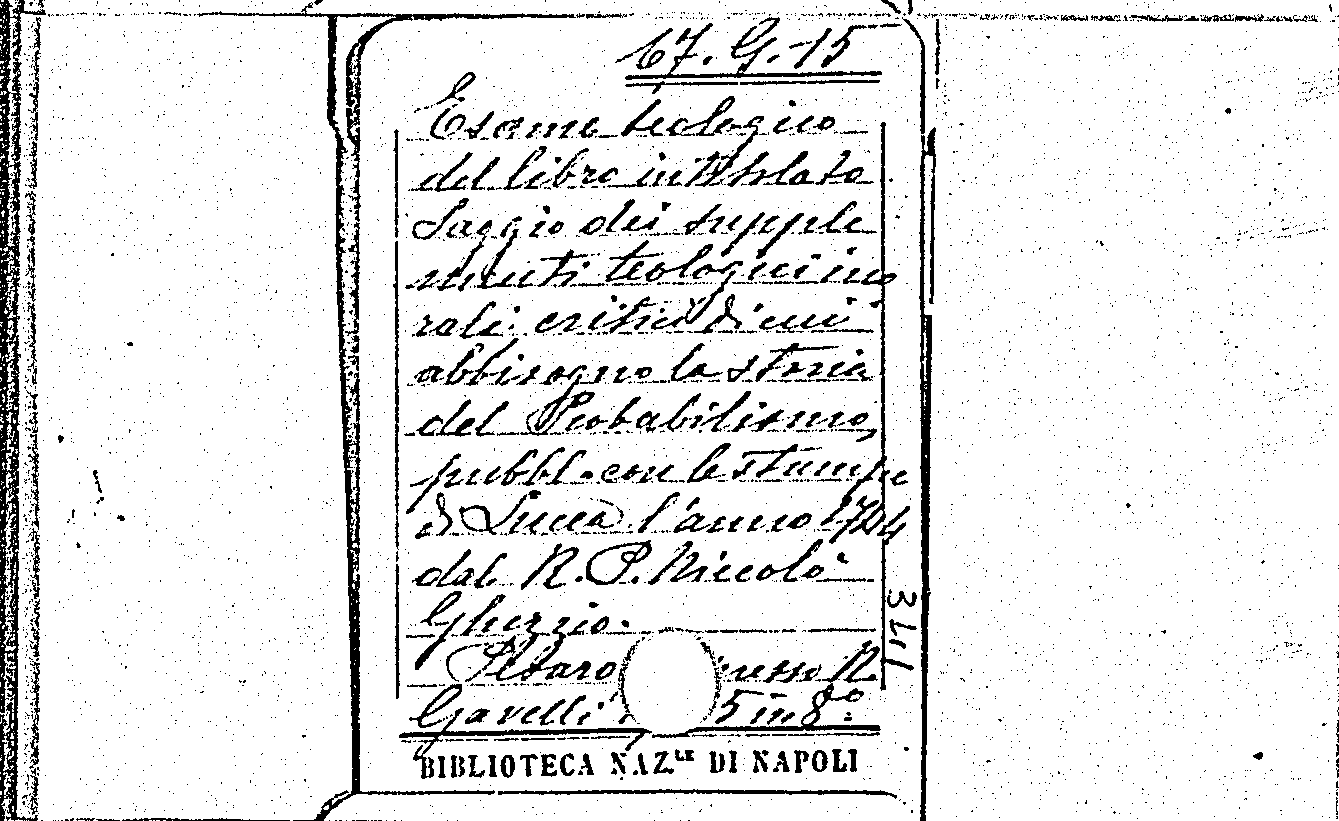 67. G. 15
Esame teologico
del libro intitolato
Saggio dei supple
menti teologici mo
rali critici di cui
abbisogna la storia
del Probabilismo,
pubbl. con le stampe
di Lucca l'anno 1744
dal R. P. Niccolò
Ghezzio.
Pesaro resso N.
Gavelli 5 in 8°.
BIBLIOTECA NAZ.LE DI NAPOLI